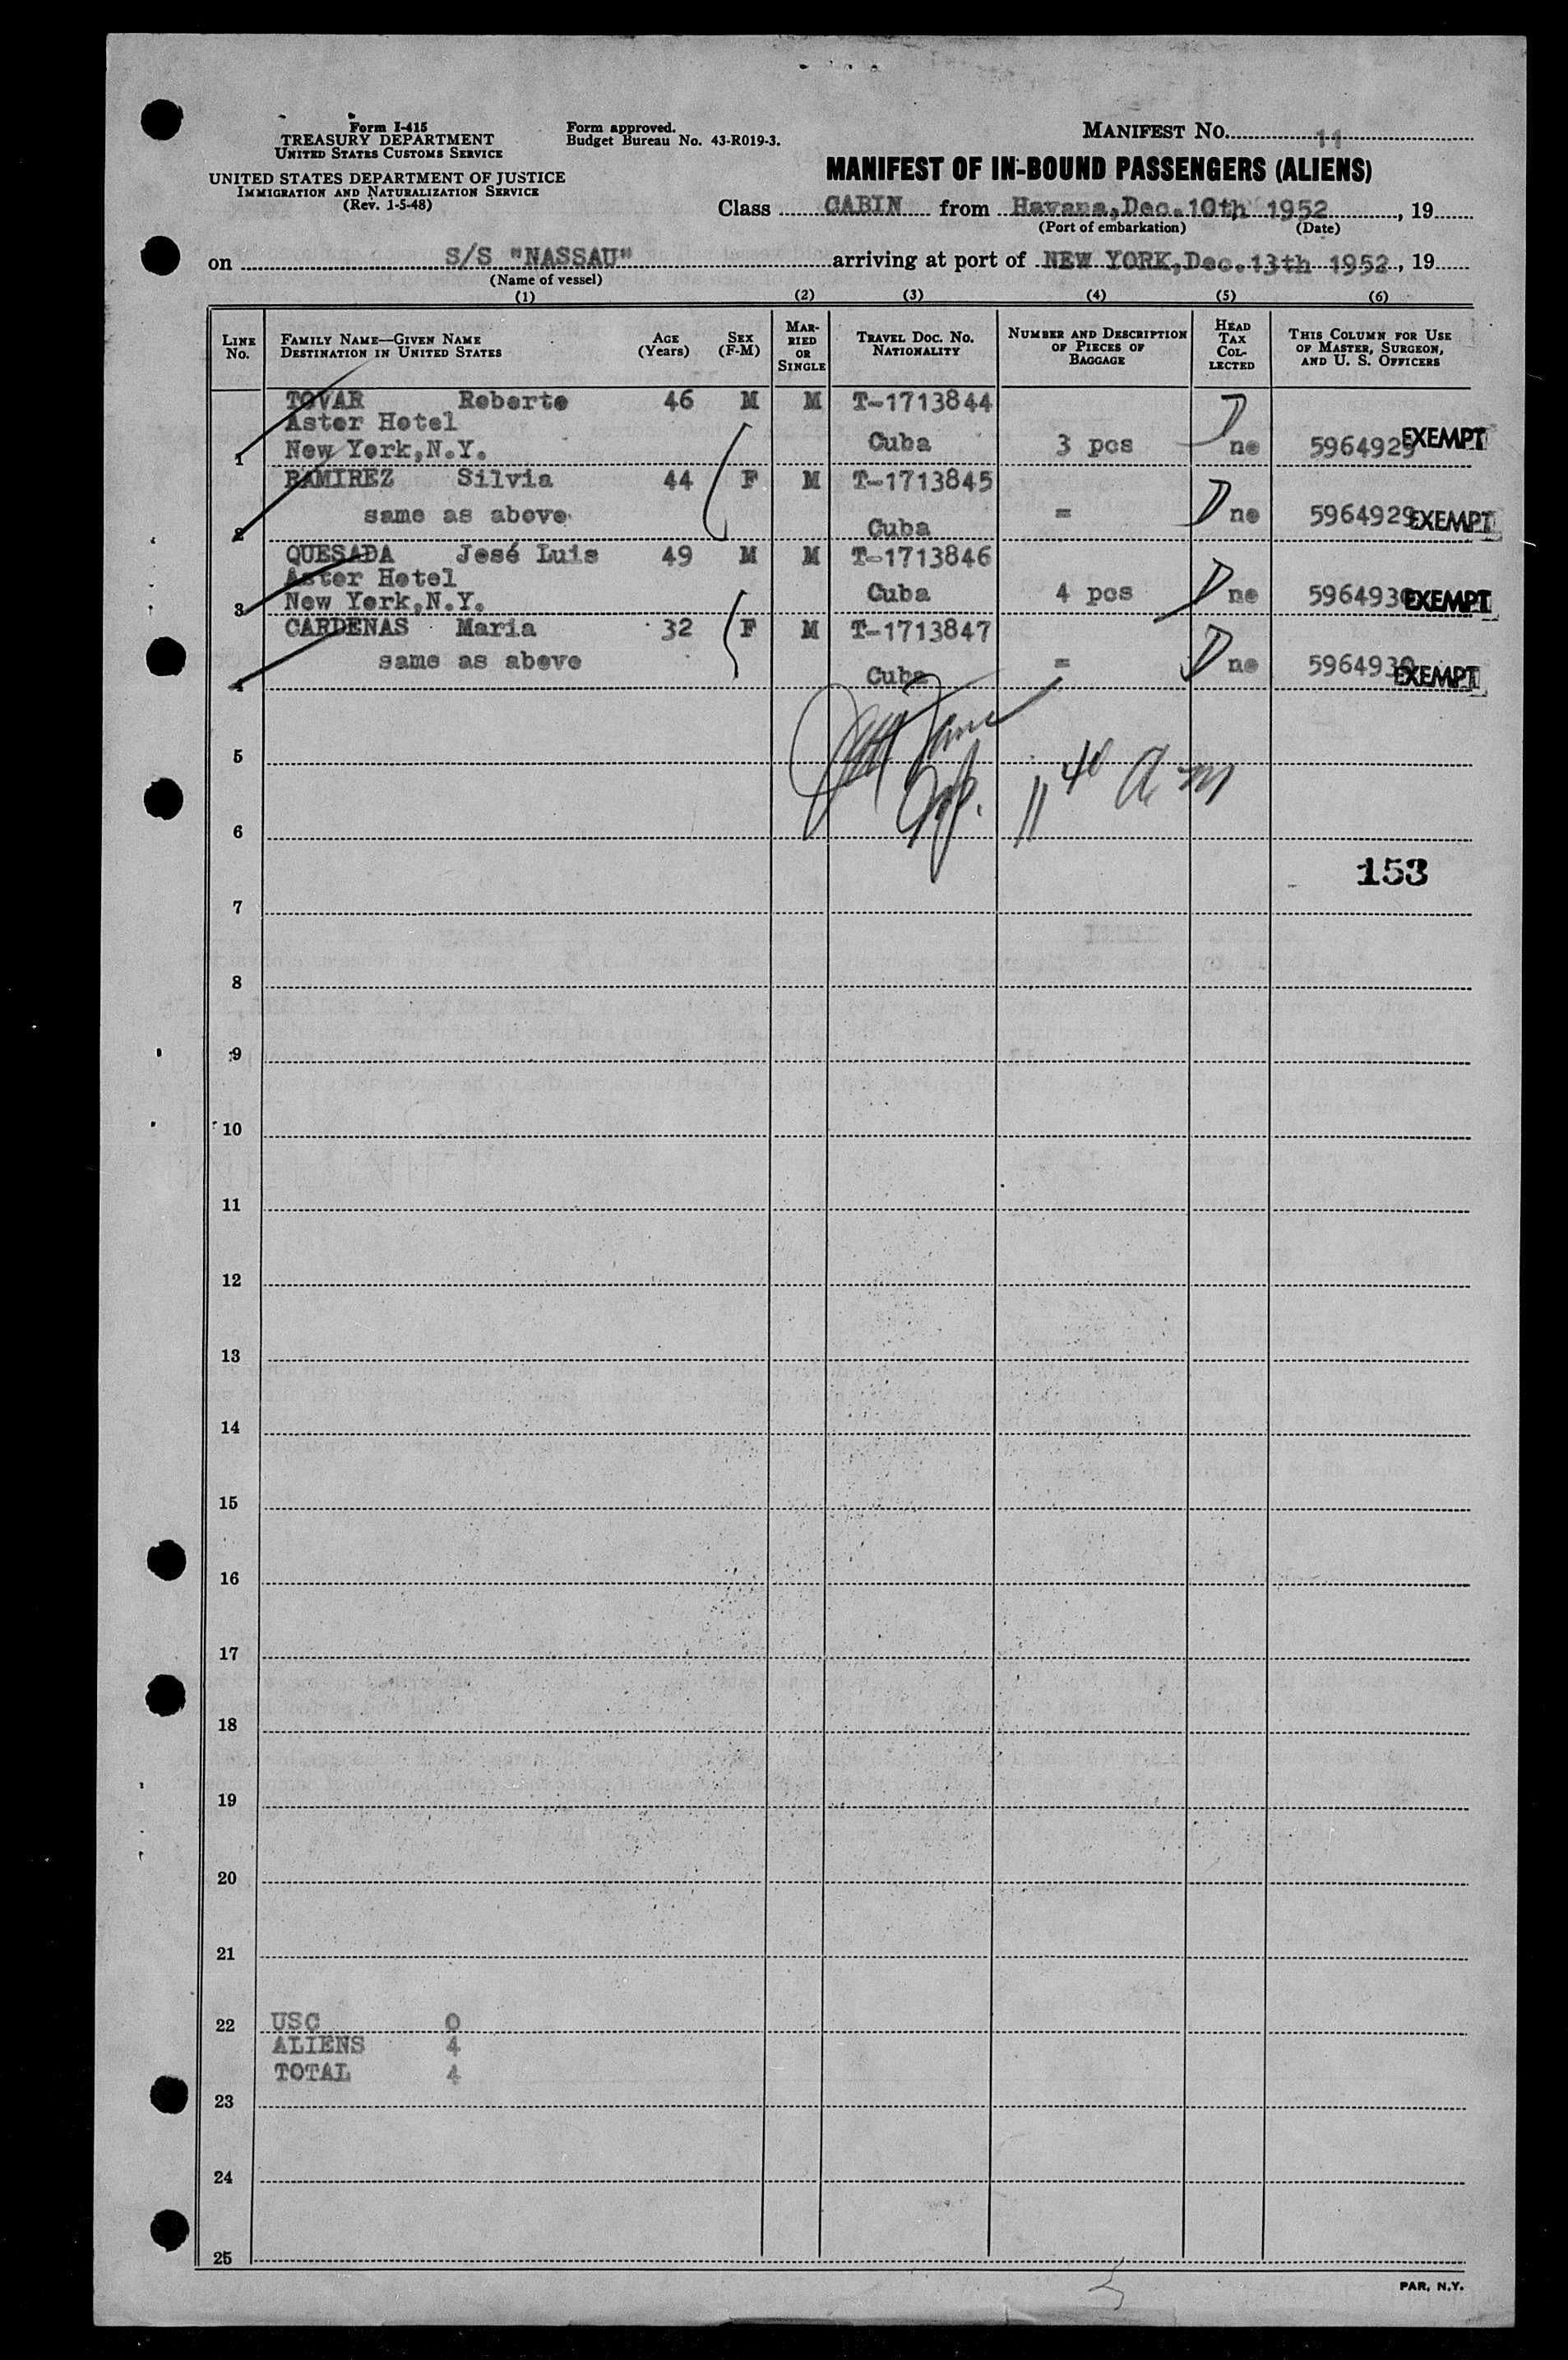 Form I-415
TREASURY DEPARTMENT
UNITED STATES CUSTOMS SERVICE
UNITED STATES DEPARTMENT OF JUSTICE
IMMIGRATION AND NATURALIZATION SERVICE
(Rev. 1-5-48)
Form approved.
Budget Bureau No. 43-R019-3.
MANIFEST NO. 11
MANIFEST OF IN-BOUND PASSENGERS (ALIENS)
Class CABIN from Havana, Dec. 10th 1952, 19
(Port of embarkation) (Date)
on S/S "NASSAU" arriving at port of NEW YORK, Dec. 13th 1952, 19
(Name of vessel)
(1) (2) (3) (4) (5) (6)
LINE No. FAMILY NAME—GIVEN NAME DESTINATION IN UNITED STATES AGE (Years) SEX (F-M) MARRIED OR SINGLE TRAVEL DOC. NO. NATIONALITY NUMBER AND DESCRIPTION OF PIECES OF BAGGAGE HEAD TAX COLLECTED THIS COLUMN FOR USE OF MASTER, SURGEON, AND U. S. OFFICERS
TOVAR Roberto 46 M M T-1713844
Astor Hotel
1 New York, N.Y. Cuba 3 pcs ne 5964929 EXEMPT
RAMIREZ Silvia 44 F M T-1713845
2 same as above Cuba = ne 5964929 EXEMPT
QUESADA José Luis 49 M M T-1713846
Astor Hotel
3 New York, N.Y. Cuba 4 pcs ne 5964930 EXEMPT
CARDENAS Maria 32 F M T-1713847
4 same as above Cuba = ne 5964930 EXEMPT
5
11 40 A m
6
153
7
8
9
10
11
12
13
14
15
16
17
18
19
20
21
22 USC 0
ALIENS 4
TOTAL 4
23
24
25
PAR, N.Y.